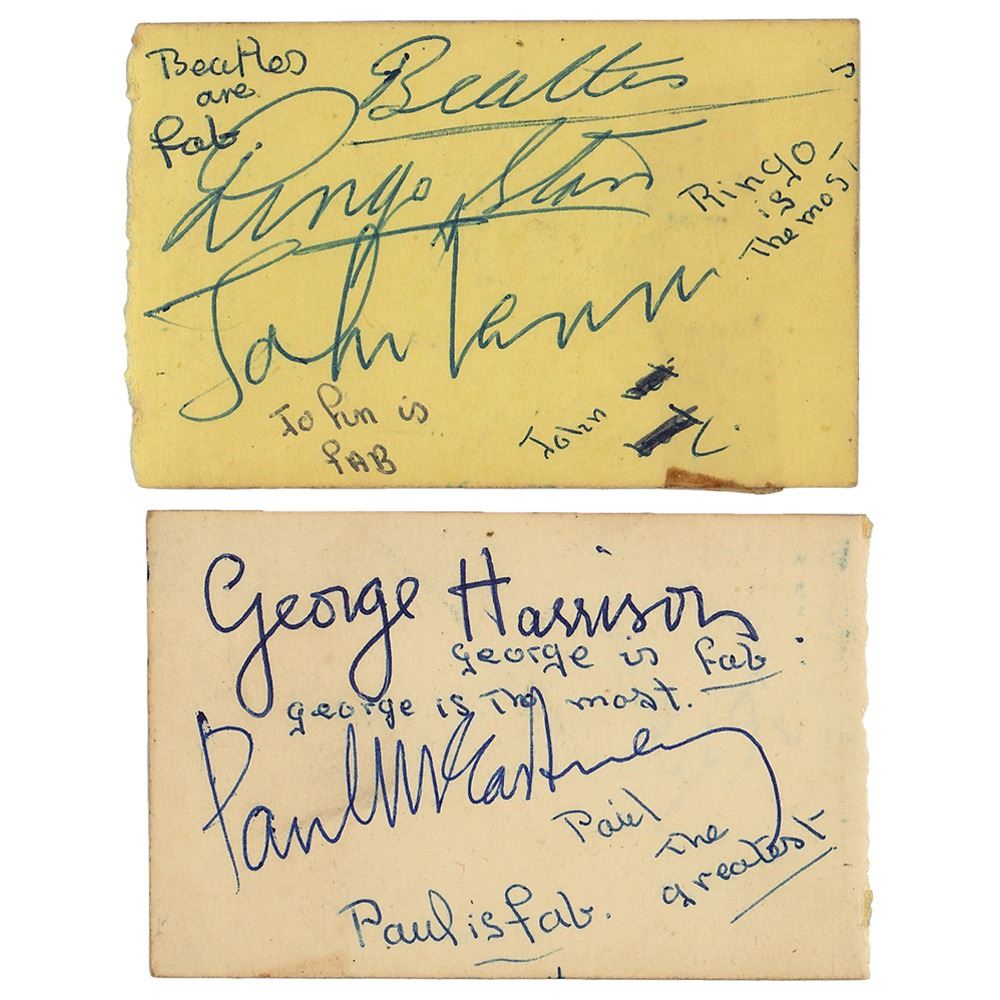 Beatles
are
fab.
Beatles
Ringo Starr
Ringo
is
the most
John Lennon
John is
FAB
John
George Harrison
george is fab.
george is the most.
Paul McCartney
Paul
the
greatest
Paul is fab.